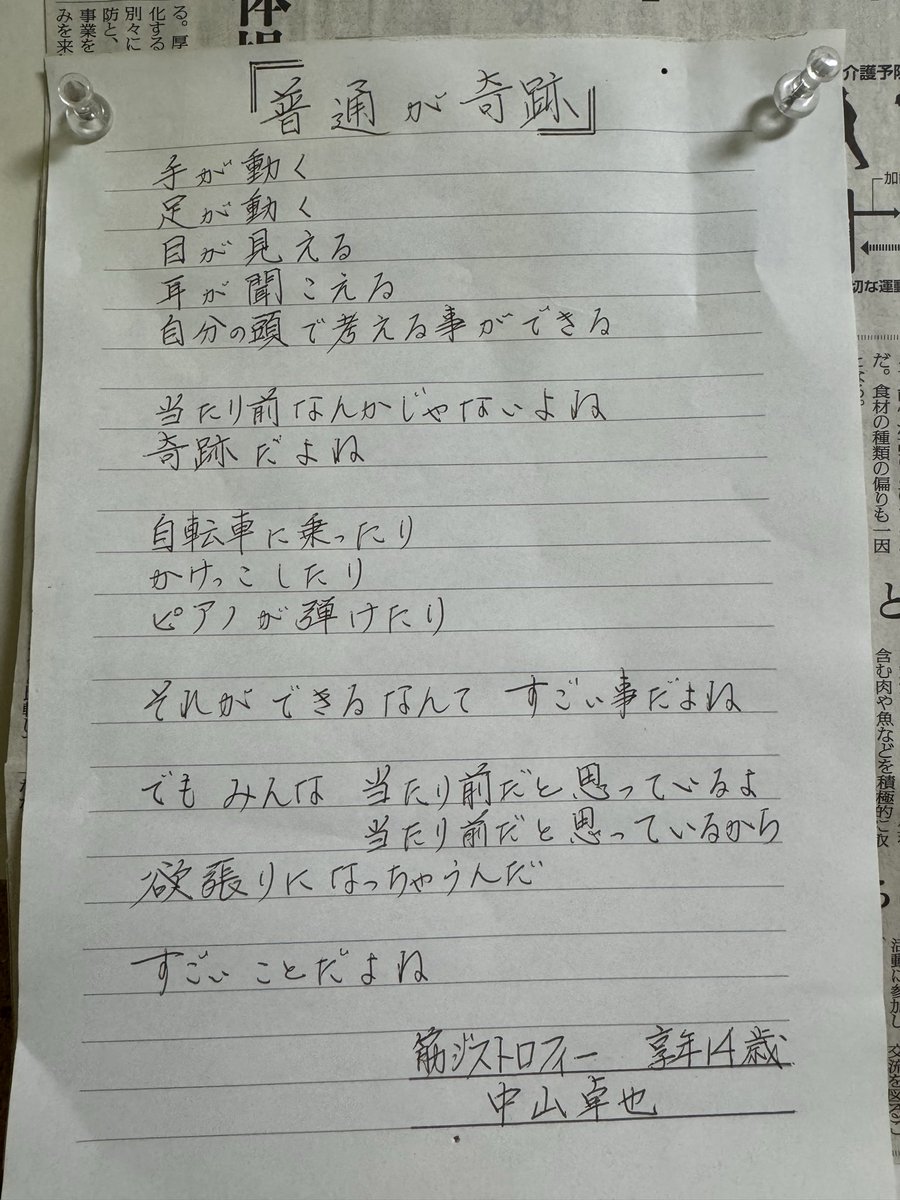 『普通が奇跡』
手が動く
足が動く
目が見える
耳が聞こえる
自分の頭で考える事ができる
当たり前なんかじゃないよね
奇跡だよね
自転車に乗ったり
かけっこしたり
ピアノが弾けたり
それができるなんて すごい事だよね
でも みんな 当たり前だと思っているよ
当たり前だと思っているから
欲張りになっちゃうんだ
すごい ことだよね
筋ジストロフィー 享年14歳
中山卓也
る。厚
化する
別々に
防と、
事業を
みを来
介護予防
切な運動
だ。食材の種類の偏りも一因
になる。
と
含む肉や魚などを積極的に取